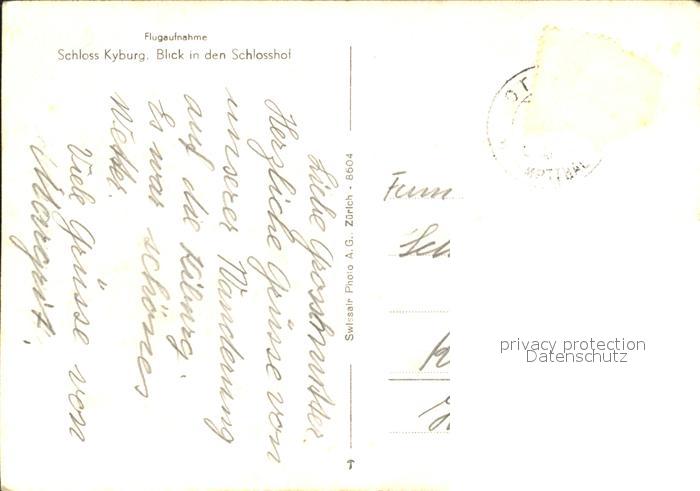 Flugaufnahme
Schloss Kyburg. Blick in den Schlosshof
Liebe Grossmutter.
Herzliche Grüsse von
unserer Wanderung
auf die Kiburg.
Es war schönes
Wetter.
Viele Grüsse von
Margrit.
Swissair Photo A. G., Zürich - 8604
Fam
privacy protection
Datenschutz